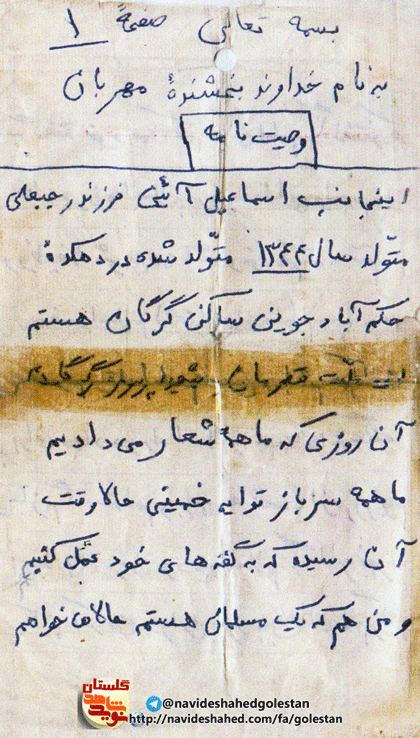 بسمه تعالی صفحهٔ ۱
به نام خداوند بخشندهٔ مهربان
وصیت نامه
اینجانب اسماعیل آئینی فرزند رجبعلی
متولد سال ۱۳۴۴ متولد شده در دهکدهٔ
حکم آباد جوین ساکن گرگان هستم
ای ملت قهرمان
آن روزی که ما همهٔ شعار می دادیم
ما همه سرباز توایم خمینی حالا وقت
آن رسیده که به گفته های خود عمل کنیم
و من هم که یک مسلمان هستم حالا می خواهم
گلستان
نوید شاهد
@navideshahedgolestan
http://navideshahed.com/fa/golestan